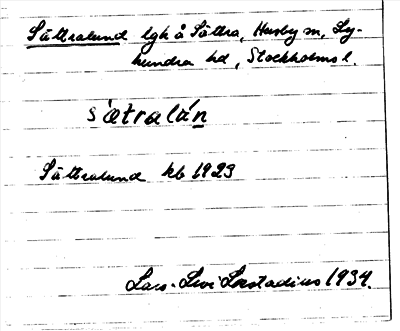 Sättralund lgh å Sättra, Husby sn, Ly-
hundra hd, Stockholms l.
sætralún
Sättralund kb 1923
Lars-Levi Læstadius 1934.